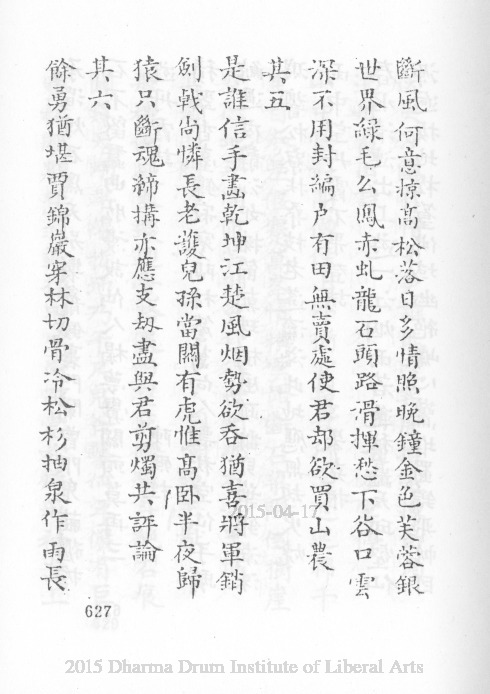 斷風何意掠高松落日多情照晚鐘金色芙蓉銀
世界綠毛么鳳赤虬龍石頭路滑揮愁下谷口雲
深不用封編戶有田無賣處使君却欲買山農
其五
是誰信手畵乾坤江楚風烟勢欲吞猶喜將軍銷
劍戟尚憐長老護兒孫當關有虎惟高卧半夜歸
猿只斷魂締搆亦應支刼盡與君剪燭共評論
其六
餘勇猶堪賈錦巖穿林切骨冷松杉抽泉作雨長
627
2015-04-17
2015 Dharma Drum Institute of Liberal Arts